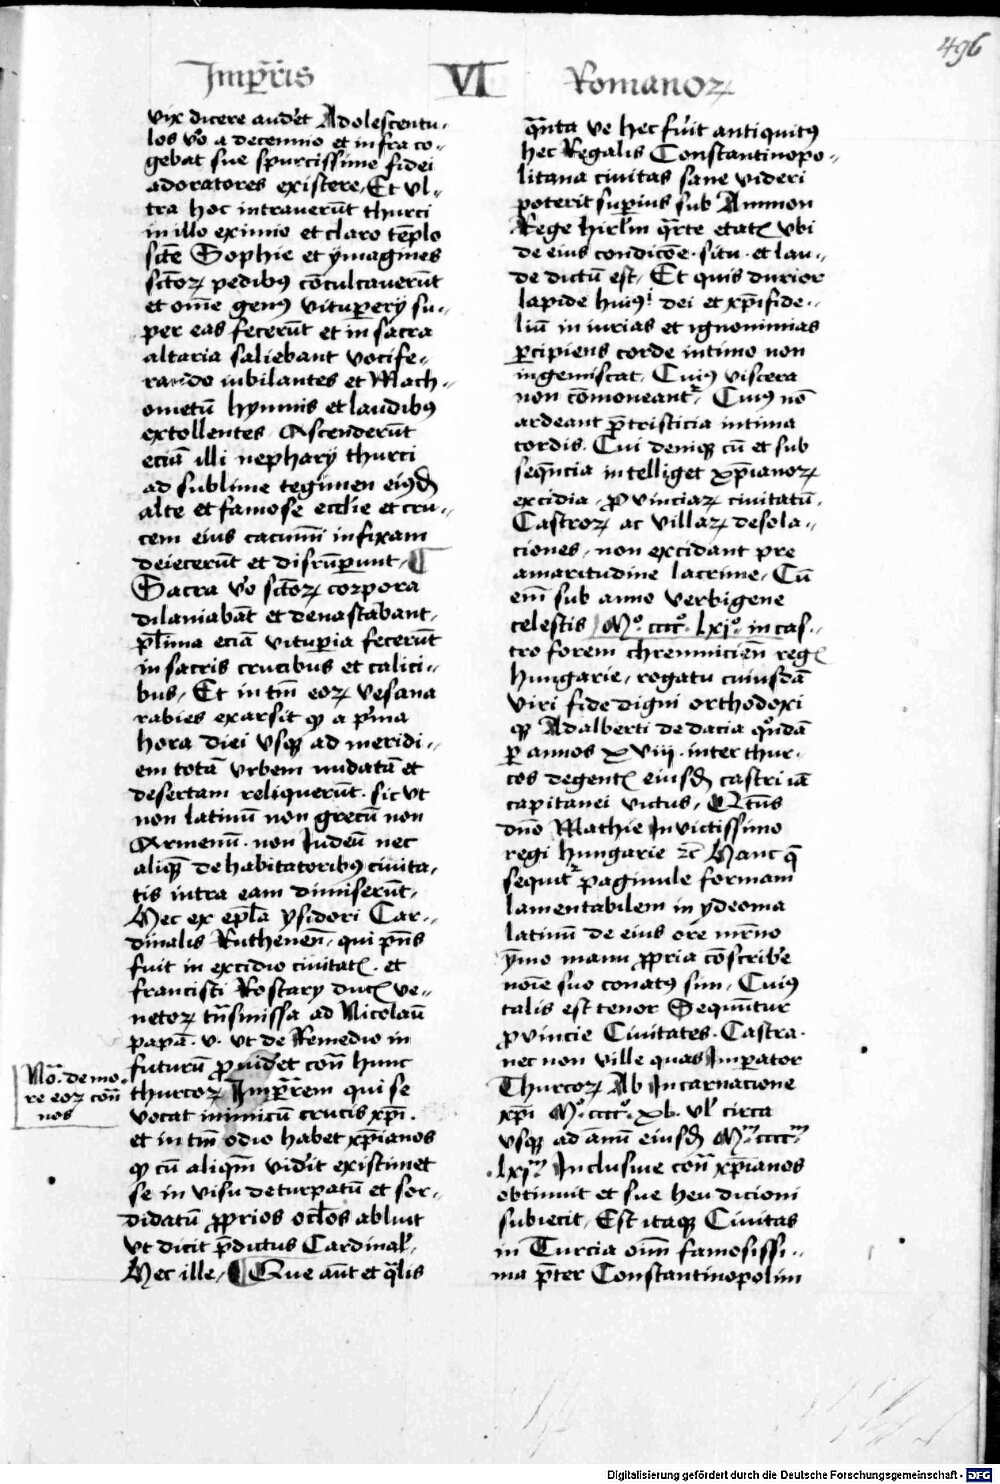 496
Imp̄r̄is VI Romanoꝝ
vix dicere audet Adolescentu-
los v̓o a decennio et infra co-
gebat sue spurcissime fidei
adoratores existere, Et ul-
tra hoc intraverūt thurci
in illo eximio et claro tēplo
sc̄te Sophie et ymagines
sc̄toꝝ pedibꝰ cōculcaverūt
et om̄e genꝰ vituperii su-
per eas fecerūt et in sacra
altaria saliebant vocife-
rando iubilantes et Mach-
ometū hymnis et laudibꝰ
extollentes Ascenderūt
eciā illi nepharÿ thurci
ad sublime tegimen eiꝰdē
alte et famose eccl̄ie et cru-
cem eius cacumini infixam
deiecerūt et disrūperunt, ¶
Sacra v̓o sc̄toꝝ corpora
dilaniabāt et devastabant,
pl̄ima eciā vituꝑia fecerūt
in sacris crucibus et calici-
bus, Et in tm̄ eoꝝ vesana
rabies exarsit qꝫ a pͥma
hora diei vsqꝫ ad meridi-
em totā vrbem nudatā et
desertam reliquerūt. sic vt
non latinū non grecū non
Armenū. non Iudeū nec
aliquē de habitatoribꝰ civita-
tis intra eam dimiserūt,
Hec ex epl̄a ysidori Car-
dinalis Ruthenen̄, qui p̄ns
fuit in excidio civitatꝭ. et
francisci Rostary ducꝭ ve-
netoꝝ tn̄smissa ad Nicolaū
papā. v. vt de Remedio in
futurū ꝓvidet con̄ hunc
thurcoꝝ Imp̄r̄em qui se
vocat inimicū crucis xp̄i.
et in tm̄ odio habet xp̄ianos
qꝫ cū aliqm̄ viderit existimet
se in visu deturpatū et sor-
didatū ꝓprios oc̄los abluit
vt dicit p̄dictus Cardinal̄,
Hec ille, ¶ Que aūt et q̄lis
No. de mo-
re eoꝝ con̄
nos
q̄nta ve hec fūit antiquitꝰ
hec Regalis Constantinopo-
litana civitas sane videri
poterit suꝑius sub Ammon
Rege hirl̄m q̄rte etatꝭ vbi
de eius condicōe. situ. et lau-
de dictū est, Et quis durior
lapide huiꝰ dei et xp̄ifide-
liū iniurias et ignominias
ꝑcipiens corde intimo non
ingemiscat, Cuiꝰ viscera
non cōmoveantᷣ, Cuiꝰ nō
ardeant p̄ tristicia intima
cordis. Cui deniqꝫ cū et sub
seq̄ncia intelliget xp̄ianoꝝ
excidia, ꝓvinciaꝝ civitatū,
Castroꝝ ac villaꝝ desola-
ciones, non excidant pre
amaritudine lacrime, Cū
em̄ sub anno verbigene
celestis Mº. ccccº. lxjº. in cas-
tro forem chremnicien̄ regꝭ
hungarie, rogatu cuiusdā
viri fide digni orthodoxi
qꝫ Adalberti de dacia quōdā
ꝑ annos xviij. inter thur-
cos degentꝭ eiusdē castri iā
capitanei victus,
dn̄o Mathie Invictissimo
regi hungarie ꝛc̄ Hanc q̄
sequitᷣ paginule formam
lamentabilem in ydeoma
latinū de eius ore mr̄no
ȳmo manu ꝓpria cōscribe
noīe suo conatꝰ sum, Cuiꝰ
talis est tenor Sequūtur
ꝓvincie Civitates. Castra.
nec non ville quas Imperator
Thurcoꝝ Ab Incarnacione
xp̄i Mº. ccccº. xl. vl̄ circa
vsqꝫ ad ānū eiusdē Mᵐ ccccᵐ
.lxjᵐ Inclusive con̄ xp̄ianos
obtinuit et sue heu dicioni
subiecit, Est itaqꝫ Civitas
in Turcia oīm famosissi-
ma p̄ter Constantinopolim
Digitalisierung gefördert durch die Deutsche Forschungsgemeinschaft - DFG